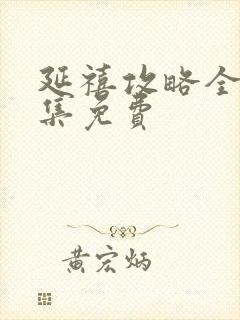 延禧攻略全
集免费
黄宏炳